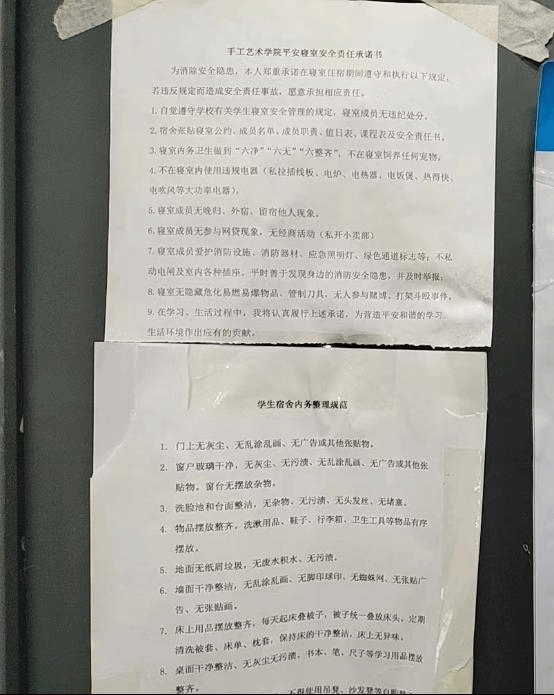 手工艺术学院平安寝室安全责任承诺书
为消除安全隐患，本人郑重承诺在寝室住宿期间遵守和执行以下规定，
若违反规定而造成安全责任事故，愿意承担相应责任。
1.自觉遵守学校有关学生寝室安全管理的规定，寝室成员无违纪处分。
2.宿舍张贴寝室公约、成员名单、成员职责、值日表、课程表及安全责任书。
3.寝室内务卫生做到“六净”“六无”“六整齐”，不在寝室饲养任何宠物。
4.不在寝室内使用违规电器（私拉插线板、电炉、电热器、电饭煲、热得快、
电吹风等大功率电器）。
5.寝室成员无晚归、外宿、留宿他人现象。
6.寝室成员无参与网贷现象，无经商活动（私开小卖部）
7.寝室成员爱护消防设施、消防器材、应急照明灯、绿色通道标志等；不私
动电闸及室内各种插座。平时善于发现身边的消防安全隐患，并及时举报；
8.寝室无隐藏危化易燃易爆物品、管制刀具，无人参与赌博、打架斗殴事件。
9.在学习、生活过程中，我将认真履行上述承诺，为营造平安和谐的学习、
生活环境作出应有的贡献。
学生宿舍内务整理规范
1. 门上无灰尘、无乱涂乱画、无广告或其他张贴物。
2. 窗户玻璃干净，无灰尘、无污渍、无乱涂乱画、无广告或其他张
贴物。窗台无摆放杂物。
3. 洗脸池和台面整洁，无杂物、无污渍、无头发丝、无堵塞。
4. 物品摆放整齐。洗漱用品、鞋子、行李箱、卫生工具等物品有序
摆放。
5. 地面无纸屑垃圾，无废水积水、无污渍。
6. 墙面干净整洁，无乱涂乱画、无脚印球印、无蜘蛛网、无张贴广
告、无张贴画。
7. 床上用品摆放整齐，每天起床叠被子，被子统一叠放床头。定期
清洗被套、床单、枕套，保持床的干净整洁，床上无异味。
8. 桌面干净整洁、无灰尘无污渍，书本、笔、尺子等学习用品摆放
整齐。
不得使用吊凳、沙发凳等自购